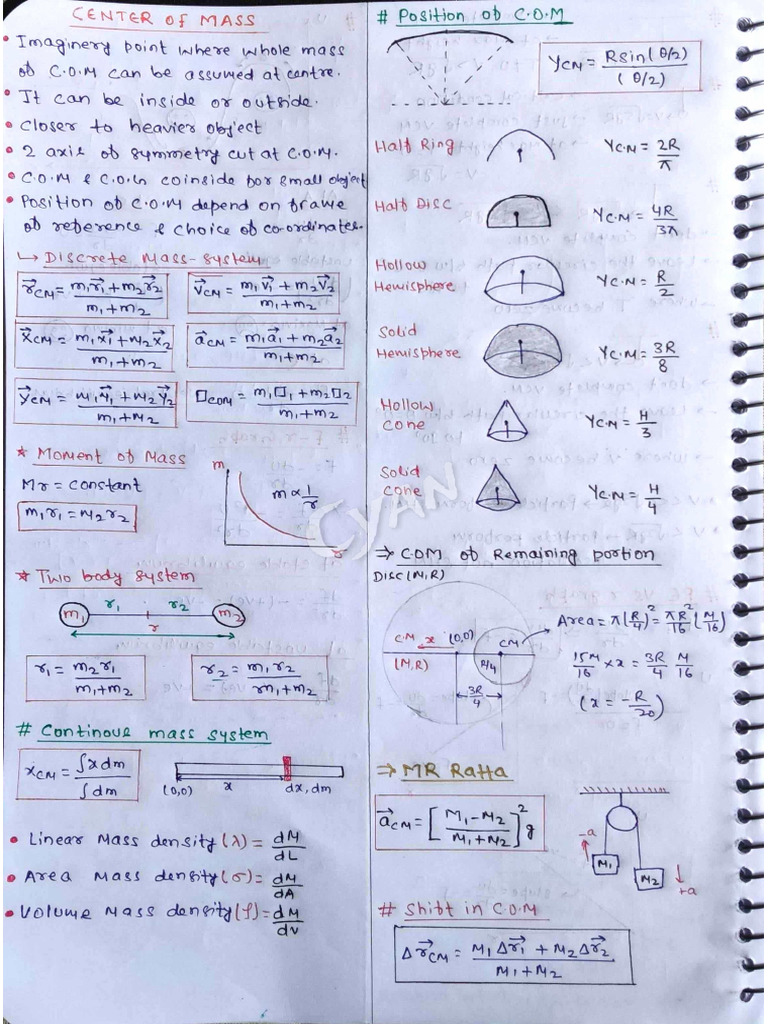 CENTER OF MASS
• Imaginery point where whole mass
of C.O.M can be assumed at centre.
• It can be inside or outside.
• closer to heavier object
• 2 axis of symmetry cut at C.O.M.
• C.O.M & C.O.G coinside for small object
• Position of C.O.M depend on frame
of reference & choice of co-ordinates.
↳ Discrete Mass-system
r⃗CM = m₁r⃗₁+m₂r⃗₂ / m₁+m₂
v⃗CM = m₁v⃗₁+m₂v⃗₂ / m₁+m₂
x⃗CM = m₁x⃗₁+m₂x⃗₂ / m₁+m₂
a⃗CM = m₁a⃗₁+m₂a⃗₂ / m₁+m₂
y⃗CM = m₁y⃗₁+m₂y⃗₂ / m₁+m₂
□COM = m₁□₁+m₂□₂ / m₁+m₂
* Moment of Mass
Mr = constant
m₁r₁ = m₂r₂
m
m ∝ 1/r
r
* Two body system
m₁ r₁ r₂ m₂
r
r₁ = m₂r₁ / m₁+m₂
r₂ = m₁r₂ / m₁+m₂
# Continous mass system
xCM = ∫x dm / ∫dm
(0,0) x dx, dm
• Linear Mass density (λ) = dM/dL
• Area Mass density (σ) = dM/dA
• Volume Mass density (ρ) = dM/dv
# Position of C.O.M
YCM = Rsin(θ/2) / (θ/2)
Half Ring YC.M = 2R/π
Half Disc YC.M = 4R/3π
Hollow
Hemisphere YC.M = R/2
Solid
Hemisphere YC.M = 3R/8
Hollow
cone YC.M = H/3
Solid
cone YC.M = H/4
CYAN
⇒ C.O.M of Remaining portion
DISC (M,R)
CM x (0,0) CM
(M,R) R/4
3R/4
Area = π(R/4)² = πR²/16 (M/16)
15M/16 × x = 3R/4 M/16
(x = -R/20)
⇒ MR Ratta
a⃗CM = [M₁-M₂ / M₁+M₂]² g
-a M₁ M₂ +a
# Shift in C.O.M
Δr⃗CM = M₁Δr⃗₁ + M₂Δr⃗₂ / M₁+M₂